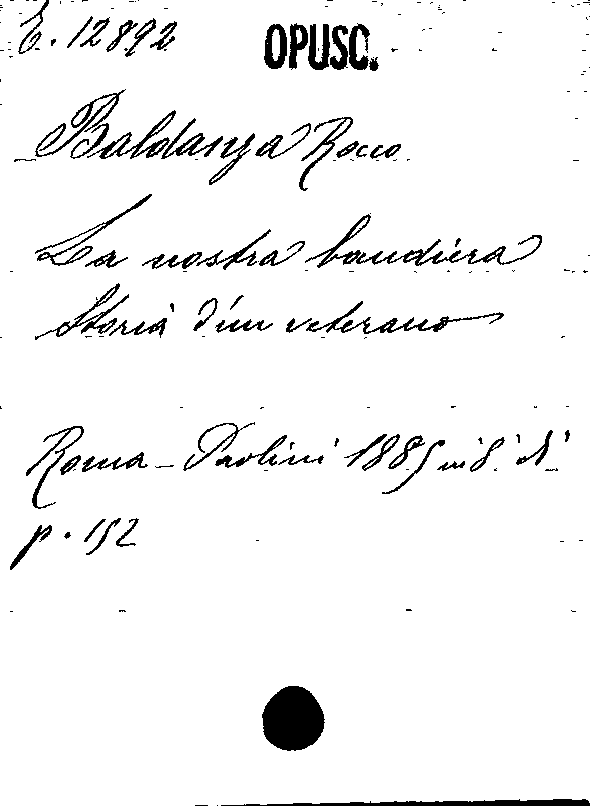 E. 12892 OPUSC.
Baldanza Rocco
La nostra bandiera
Storia d'un veterano
Roma - Paolini 1885 in 8° di
p. 152